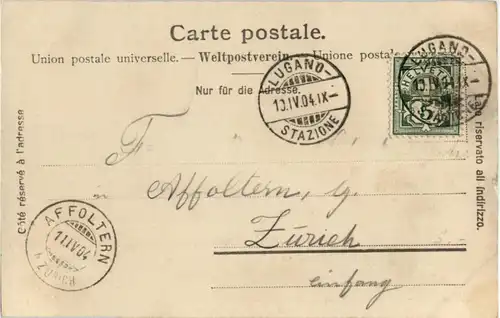 Carte postale.
Union postale universelle. — Weltpostverein. — Unione postale
Nur für die Adresse.
LUGANO-
10.IV.04.IX-
STAZIONE
LUGANO-
10.IV.04.IX-
HELVETIA
5
Côté réservé à l'adresse
Lato riservato all indirizzo.
F
Affoltern, g.
Zürich
einfang
AFFOLTERN
11.IV.04
ZÜRICH